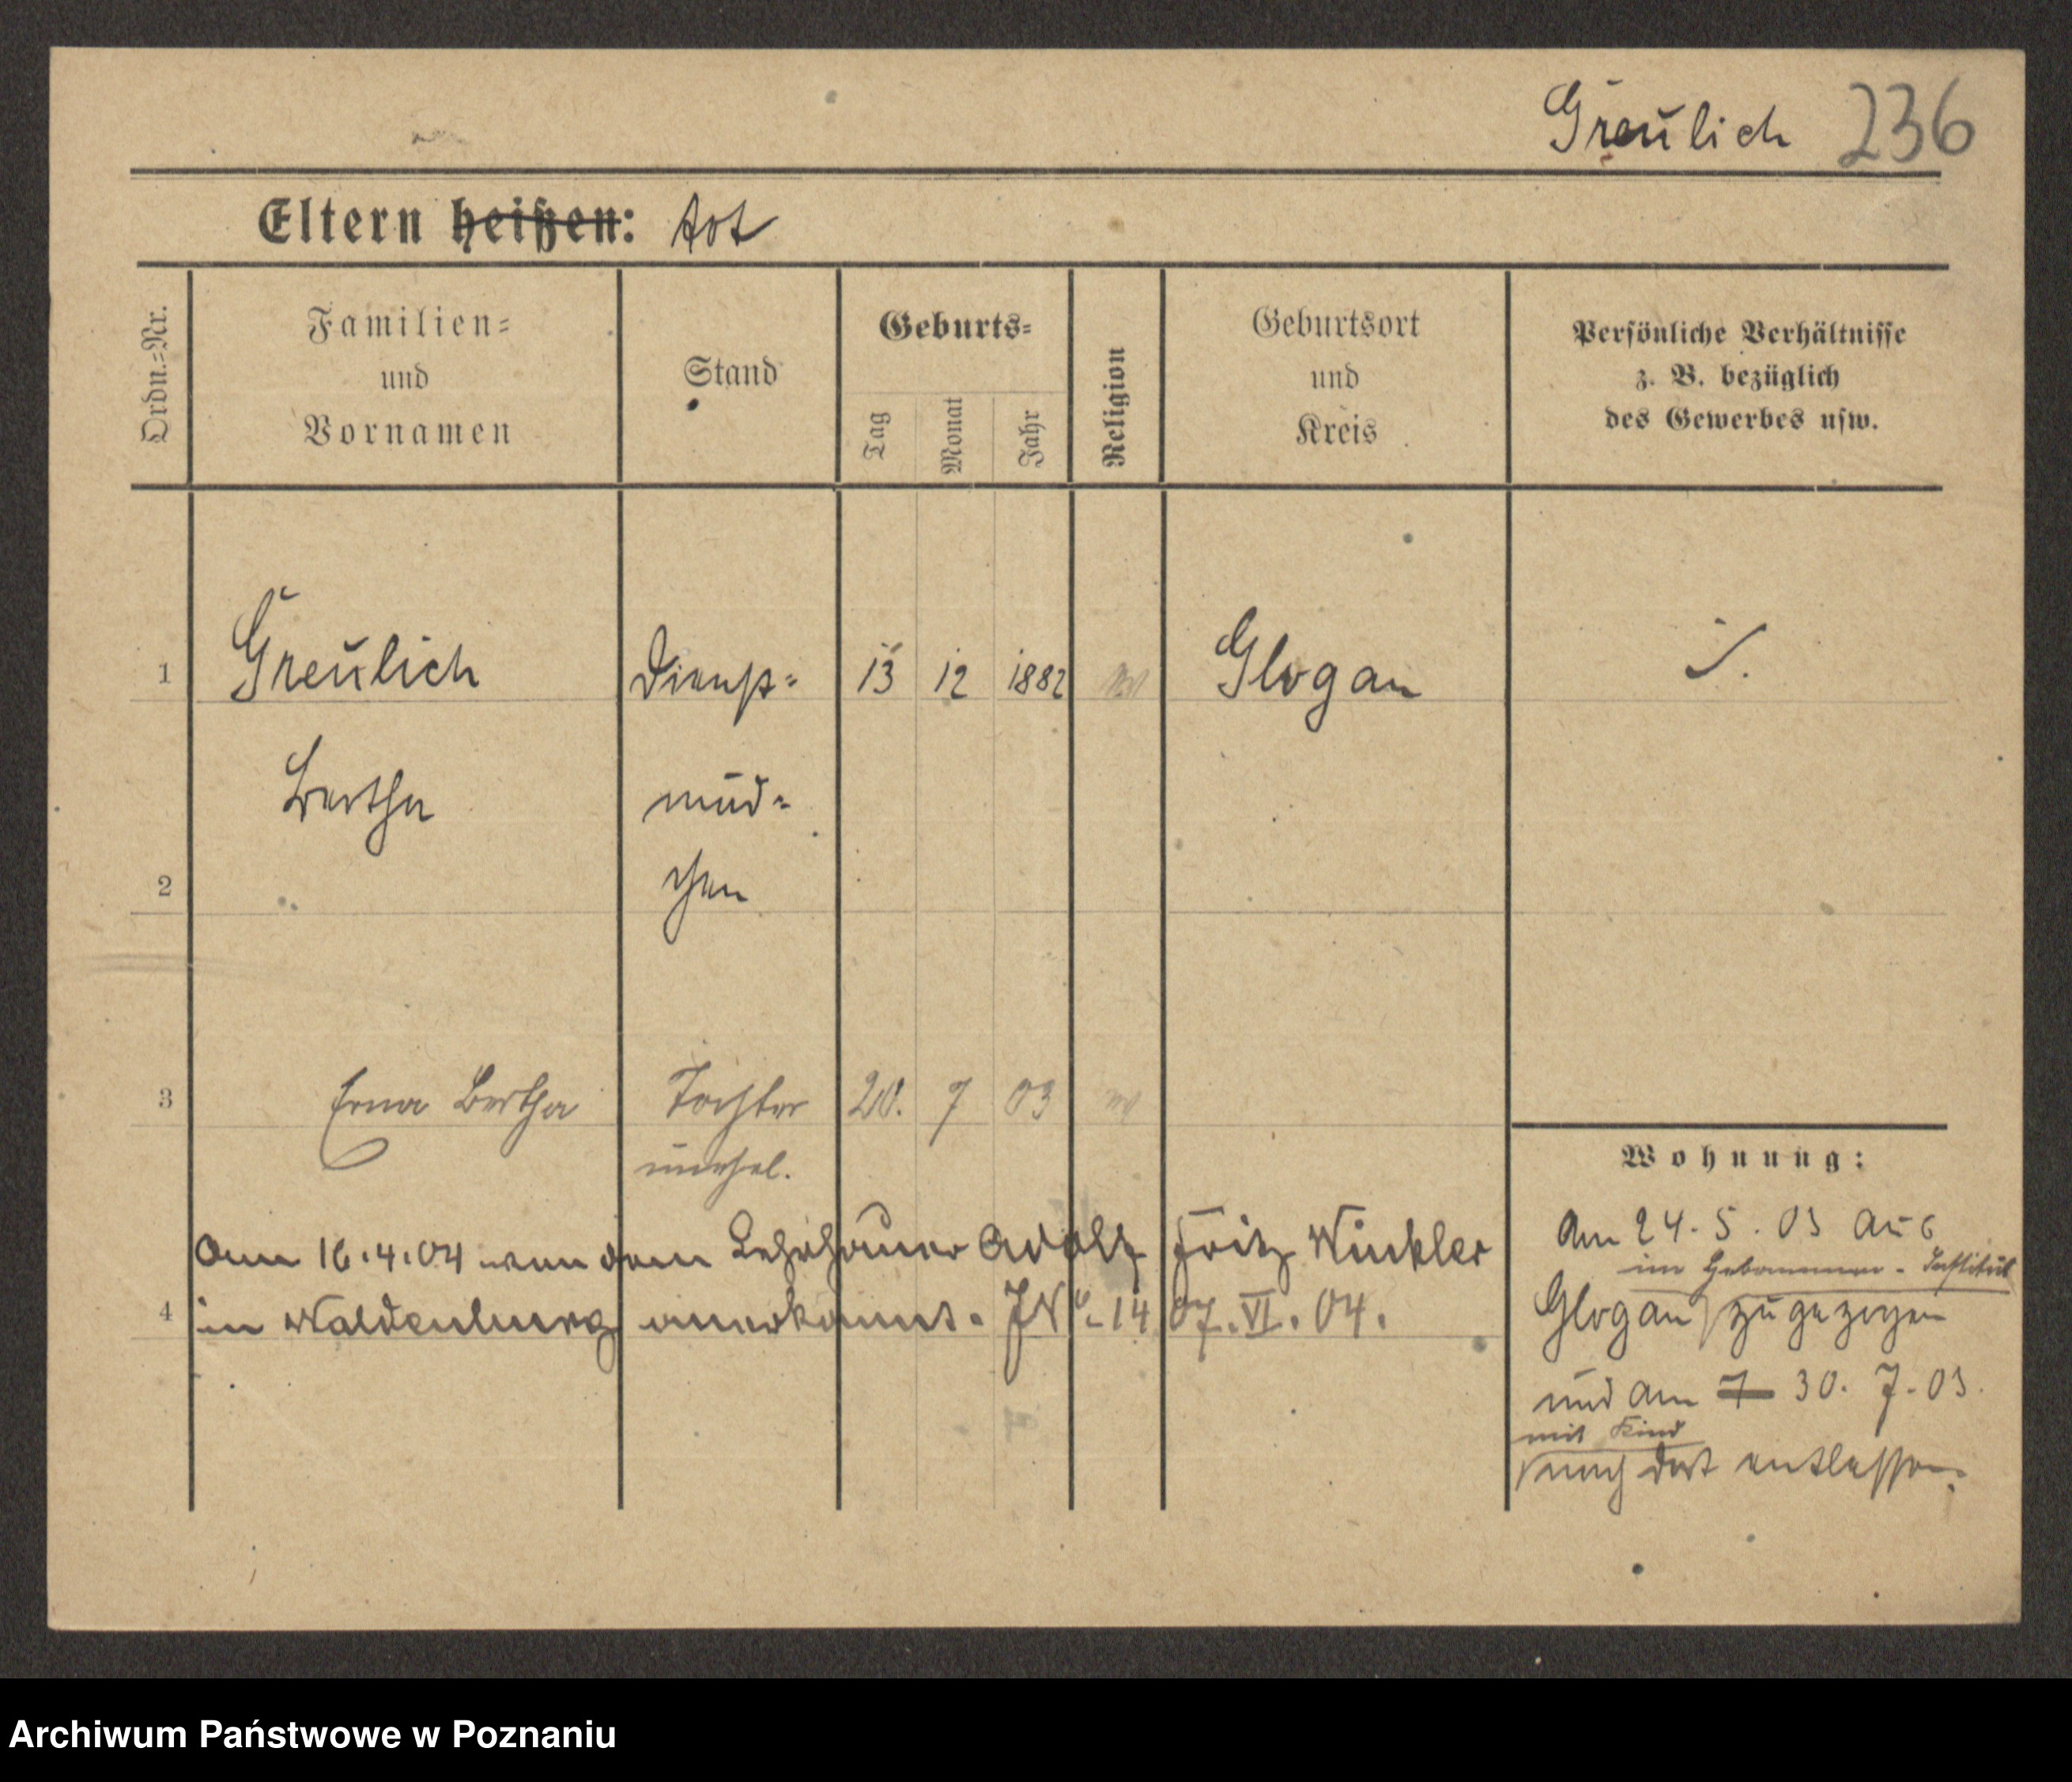 Greulich 236
Eltern heißen: tot
Ordn.-Nr.
Familien-
und
Vornamen
Stand
Geburts-
Tag
Monat
Jahr
Religion
Geburtsort
und
Kreis
Persönliche Verhältnisse
z. B. bezüglich
des Gewerbes usw.
1 Greulich Dienst- 13 12 1882 Glogau ./.
Bertha mäd-
2 chen
3 Erna Bertha Tochter 20. 7 03
unehel.
Wohnung:
Am 16.4.04 von dem Lehrhauer Adolf Fritz Winkler
4 in Waldenburg anerkannt. 14 07. VI. 04.
Am 24.5.03 aus
im Hebammen-Institut
Glogau zugezogen
und am 7 30. 7. 03.
mit Kind
nach dort entlassen.
Archiwum Państwowe w Poznaniu